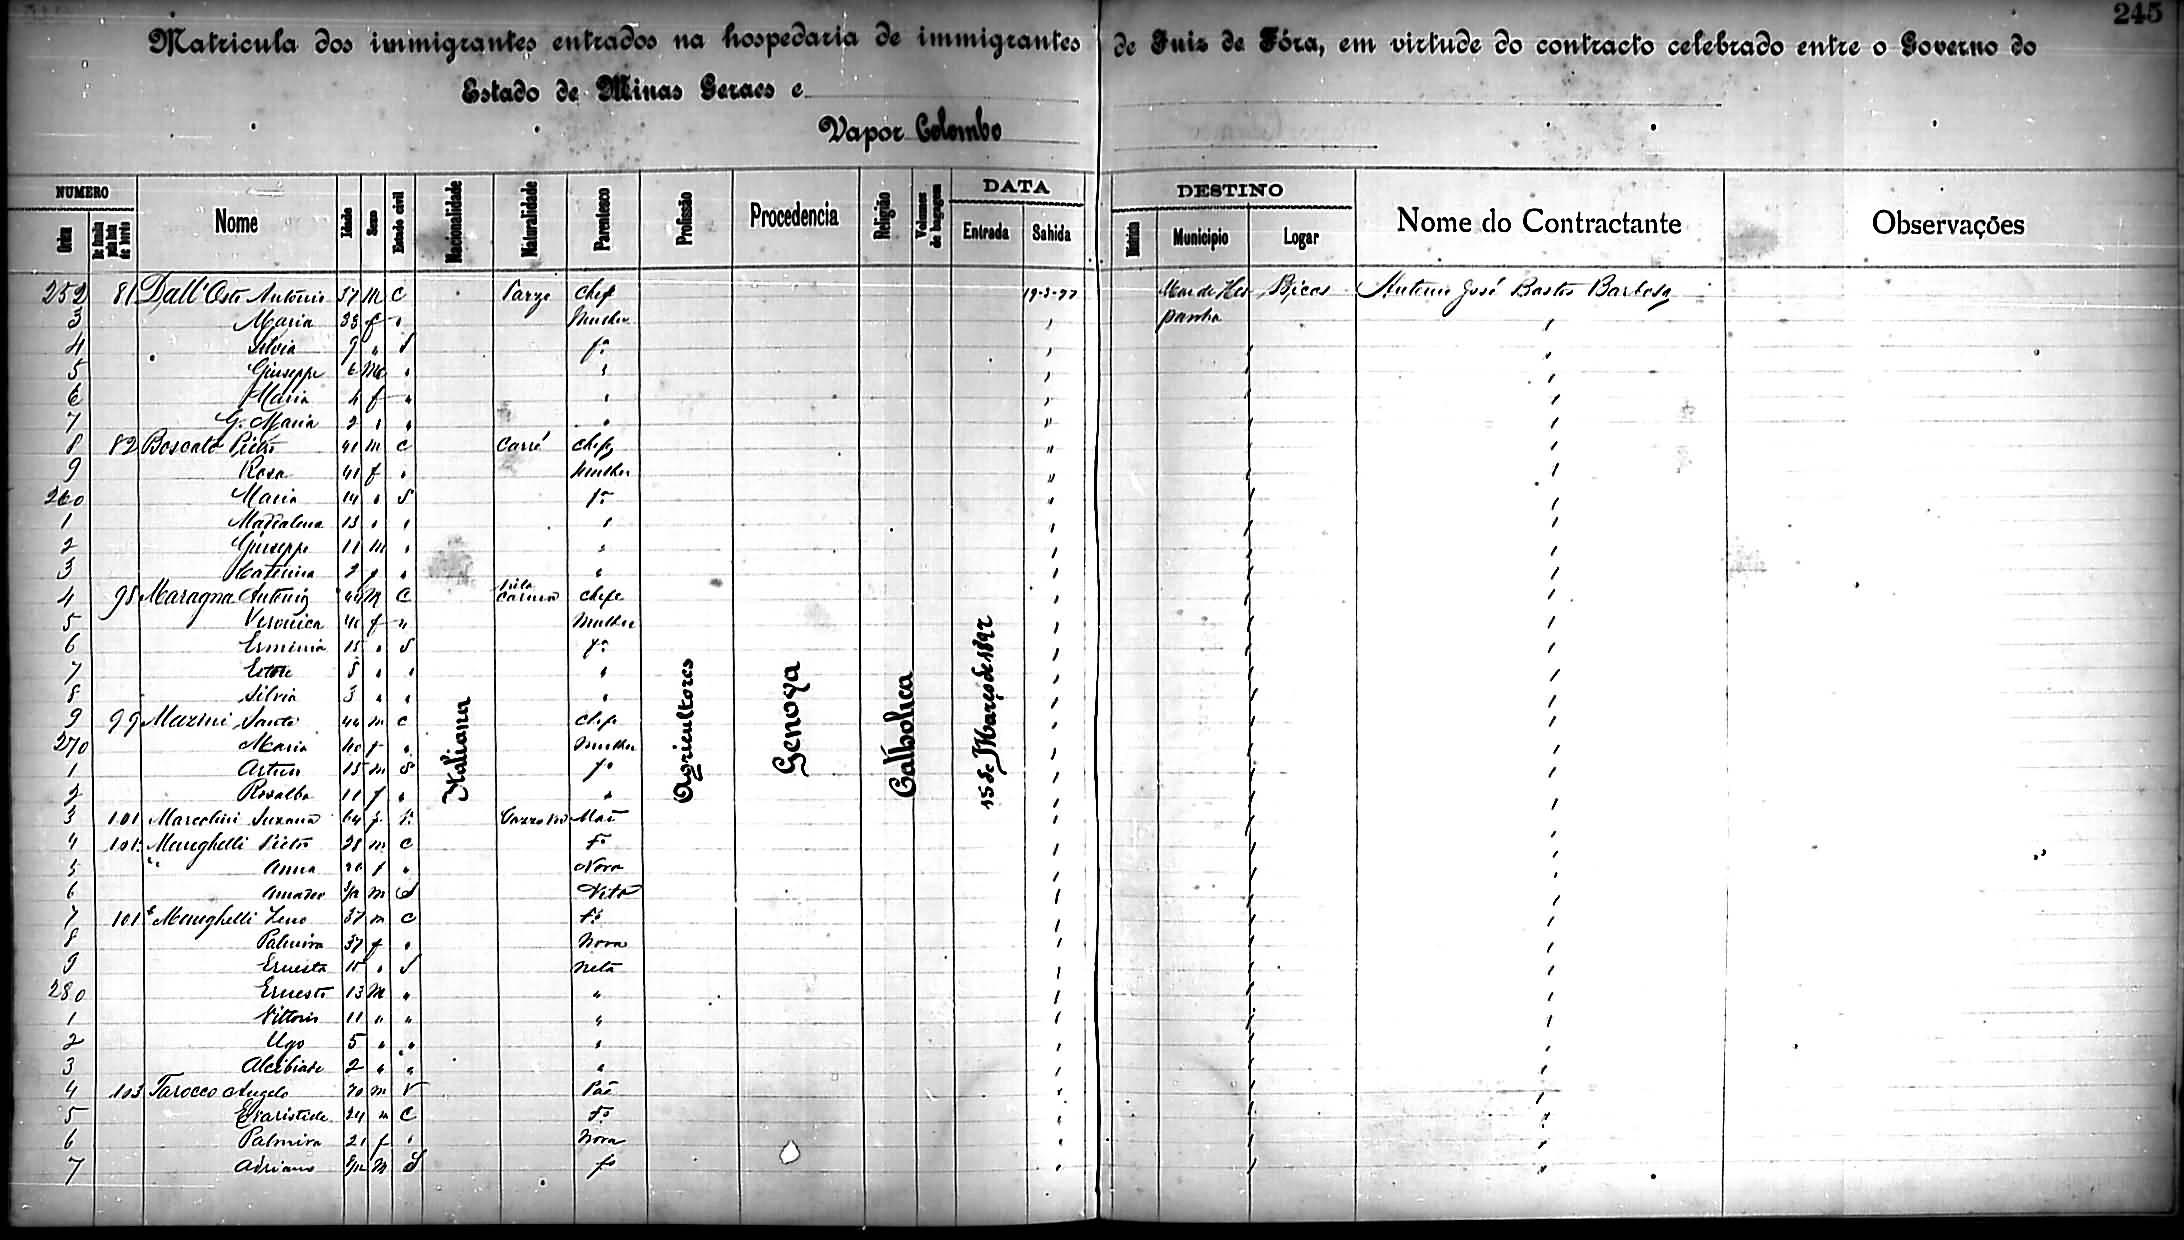 245
Matricula dos immigrantes entrados na hospedaria de immigrantes de Juiz de Fóra, em virtude do contracto celebrado entre o Governo do
Estado de Minas Geraes e
Vapor Colombo
NUMERO Nome Idade Sexo Estado civil Nacionalidade Naturalidade Parentesco Profissão Procedencia Religião Volumes de bagagem DATA DESTINO Nome do Contractante Observações
Ordem Entrada Sahida Districto Municipio Logar
252 81 Dall'Osto Antonio 37 M C chefe 19-3-92 Mar de Hes Bicas Antonio José Bastos Barbosa
3 Maria 33 f " Mulher " panha "
4 Silvia 9 " S fª " " "
5 Giuseppe 6 M " " " " "
6 Maria 4 f " " " " "
7 G. Maria 2 " " " " " "
8 82 Boscato Pietro 41 m C Carré chefe " " "
9 Rosa 41 f " Mulher " " "
260 Maria 14 " S fª " " "
1 Maddalena 13 " " " " " "
2 Giuseppe 11 m " " " " "
3 Caterina 2 f " " " " "
4 98 Maragna Antonio M C chefe " " "
5 Veronica f " Mulher " " "
6 Erminia 15 " S fª " " "
7 Ettore 8 " " " " " "
8 Silvia 3 " " " " " "
9 99 Santo 44 m C chefe " " "
270 Maria 40 f " Mulher " " "
1 Arturo 15 m S fº " " "
2 Rosalba 11 f " " " " "
3 101 Marcolini Suzana 64 f Mãe " " "
4 101 Meneghelli Pietro 28 m C Fº " " "
5 " Anna f " Nora " " "
6 Amadeo m S Neto " " "
7 101 Meneghelli Zeno 37 m C Fº " " "
8 Palmira 37 f " Nora " " "
9 Ernesta 15 " S Neta " " "
280 Ernesto 13 M " " " " "
1 Vittorio 11 " " " " " "
2 Ugo 5 " " " " " "
3 Alcibiade 2 " " " " " "
4 103 Tarocco Angelo 70 m V Pae " " "
5 Evaristide 24 m C Fº " " "
6 Palmira 21 f " Nora " " "
7 Adriano M S fº " " "
Italiana
Agricultores
Genova
Catholica
15 de Março de 1892